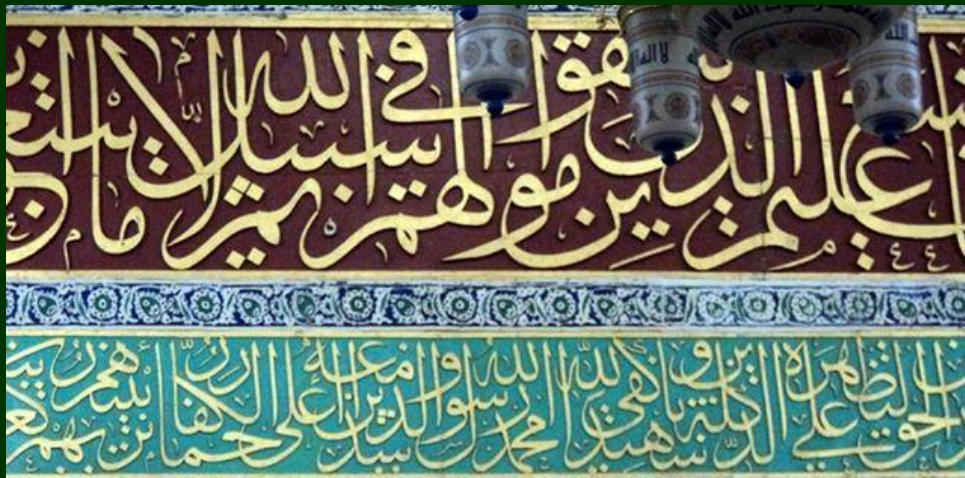 عليم الذين ينفقون أموالهم في سبيل الله ثم لا يتبعون ما
الحق ليظهره على الدين كله وكفى بالله شهيدا محمد رسول الله والذين معه أشداء على الكفار رحماء بينهم